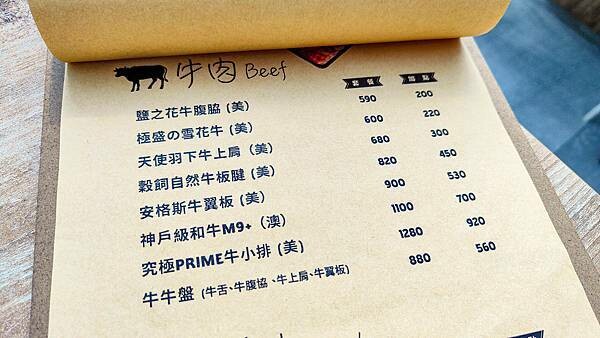 牛肉 Beef
套餐 加點
鹽之花牛腹脇 (美) 590 200
極盛の雪花牛 (美) 600 220
天使羽下牛上肩 (美) 680 300
穀飼自然牛板腱 (美) 820 450
安格斯牛翼板 (美) 900 530
神戶級和牛M9+ (澳) 1100 700
究極PRIME牛小排 (美) 1280 920
牛牛盤 (牛舌、牛腹協、牛上肩、牛翼板) 880 560